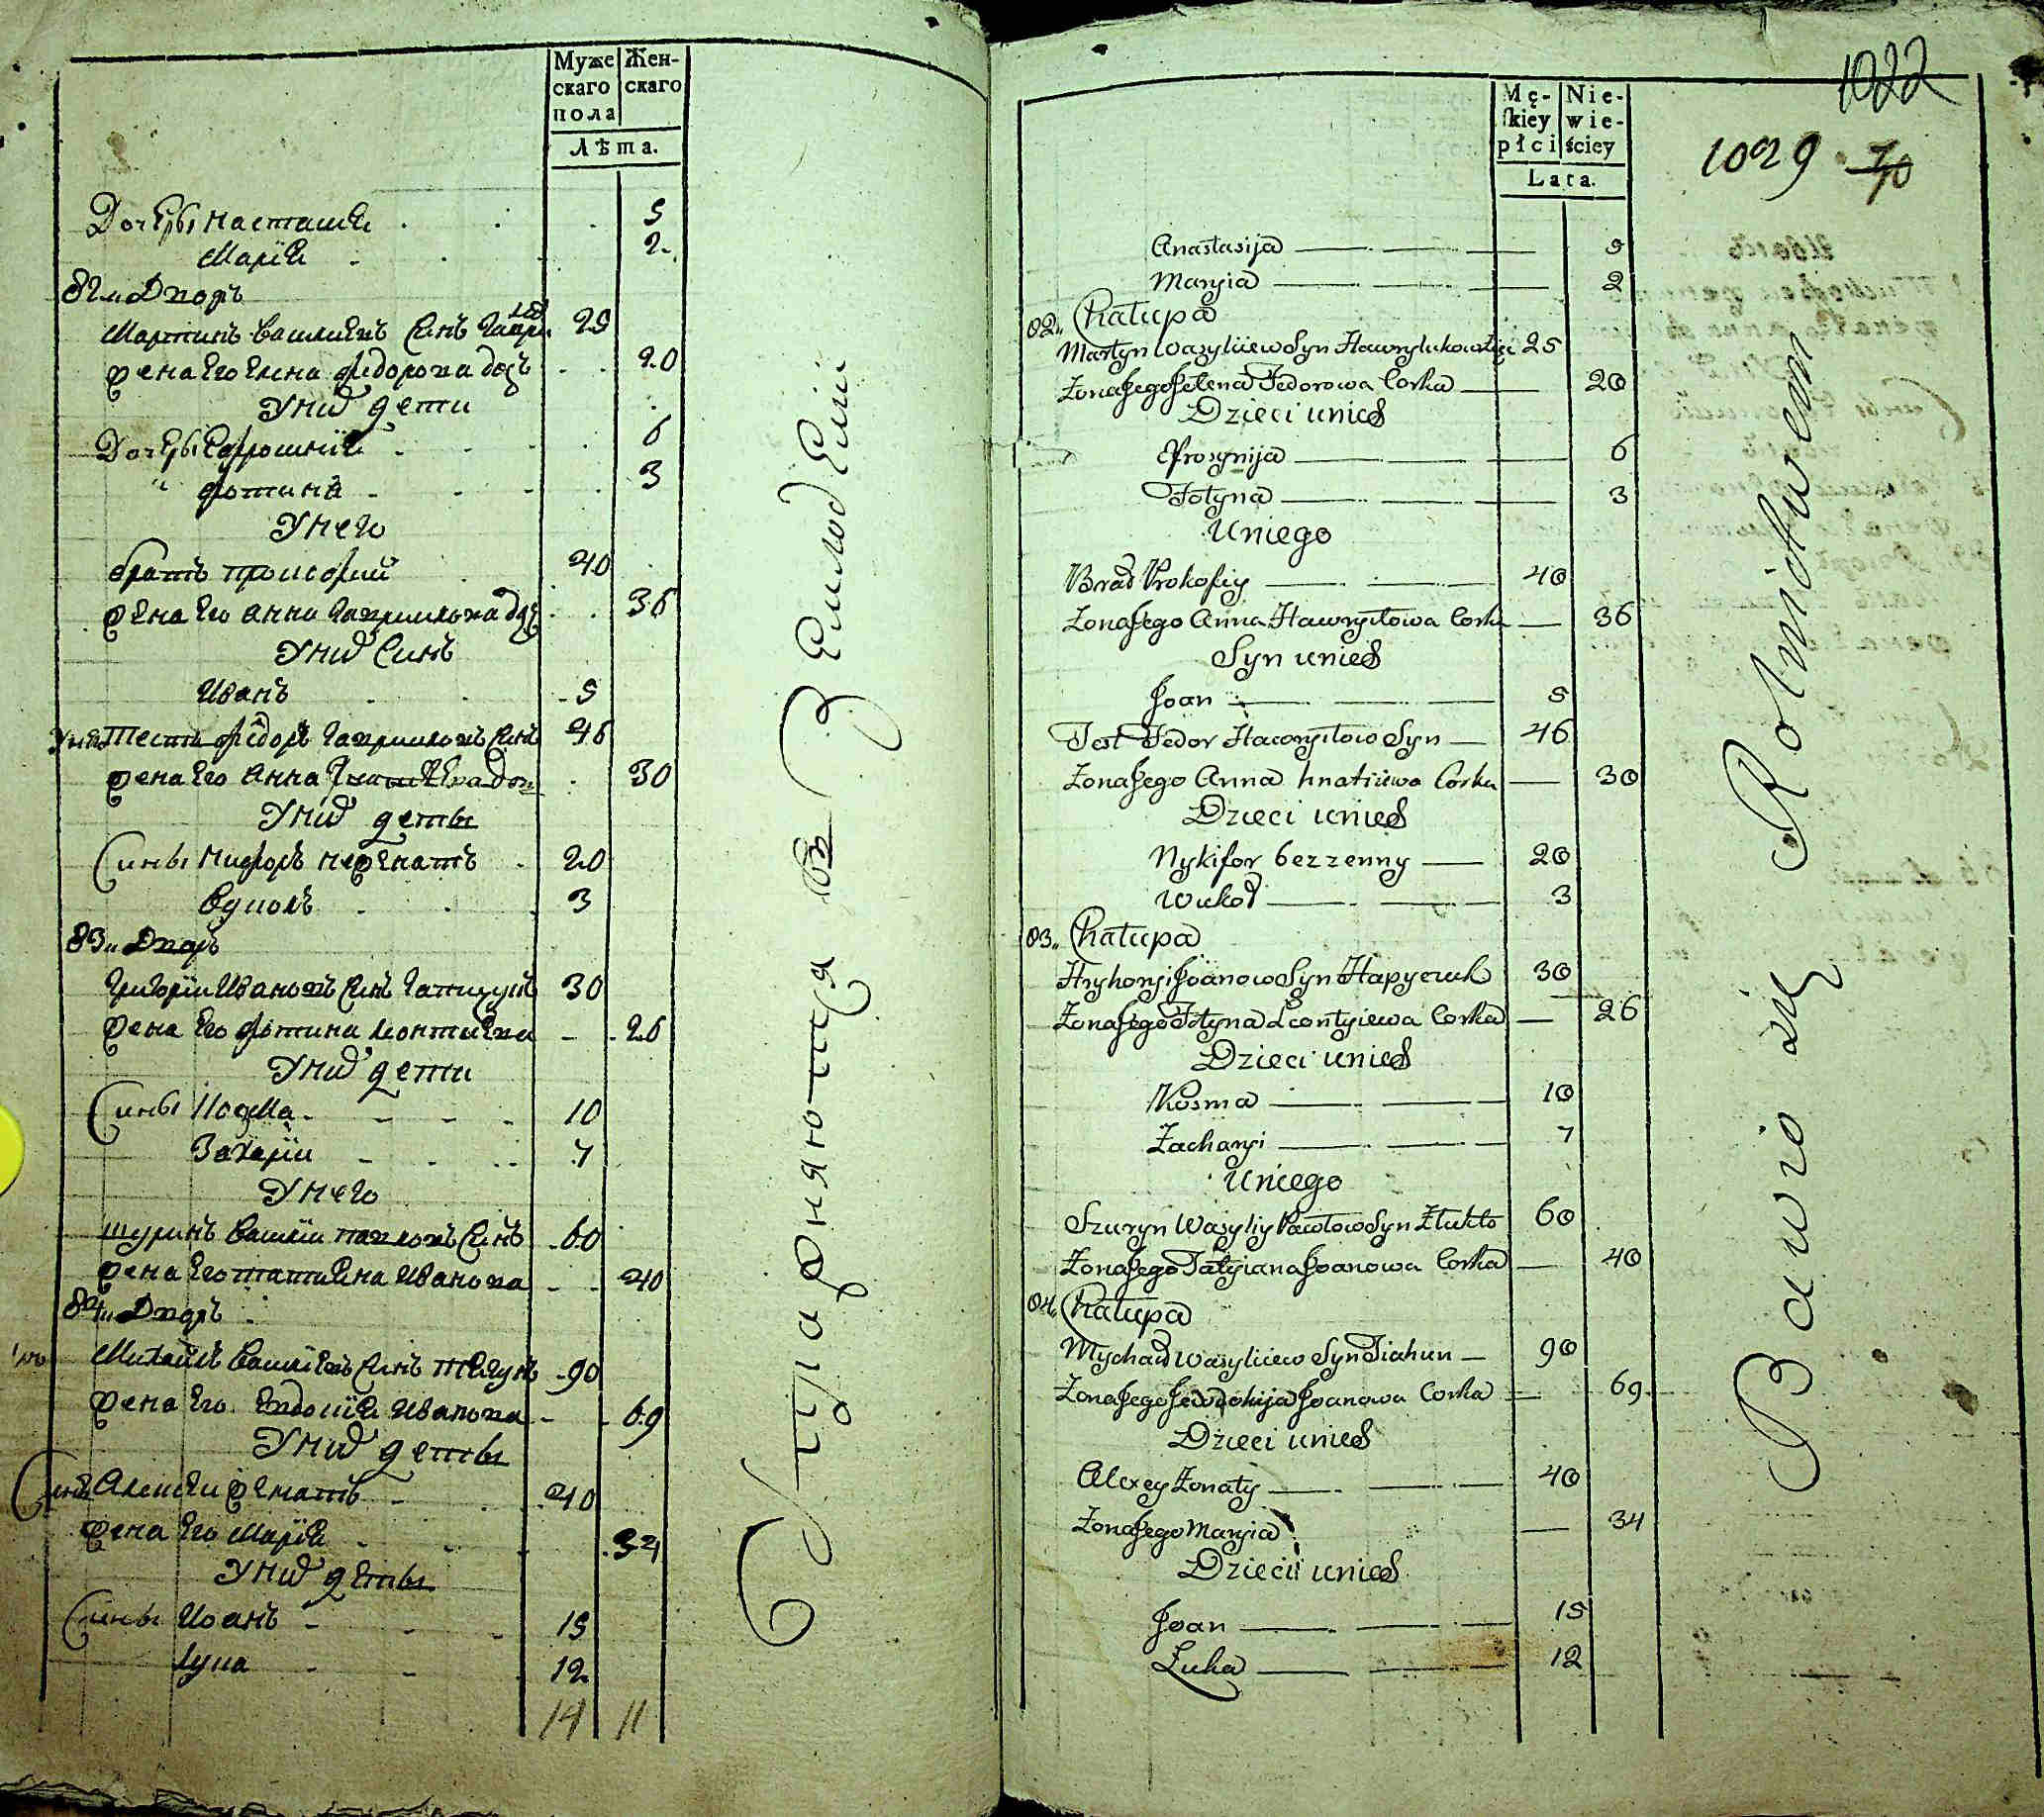 Муже
скаго
пола
Жен-
скаго
Лѣта.
Дочеры Насташiѧ 5
Марiѧ 2
82„ Дворъ
Мартинъ Василиевъ Синъ Гаврилю 25
Жена Его Елена Федорова доч 20
У нид дети
Дочеры Ефросинiѧ 6
„ Фотина 3
У него
братъ Прокофий 40
Жена Его Анна Гаврилова доч 36
У нид Синъ
Иванъ 5
У них Тесть Федоръ Гавриловъ Синъ 46
Жена Его Анна Гнатиева доч 30
У нид деты
Сины Никифоръ нежонатъ 20
Вуколъ 3
83„ Дворъ
Григорiи Ивановъ Синъ Гапичукъ 30
Жена Его Фотина Леонтиева 26
У нид дети
Сины Козма 10
Захарiи 7
У него
шуринъ Василiи Павловъ Синъ 60
Жена Его Татиѧна Иванова 40
84„ Дворъ
Михаилъ Василиевъ Синъ Тягунъ 90
Жена Его Евдокиѧ Иванова 69
У нид деты
Синъ Алексѣи Жонатъ 40
Жена Его Марiѧ 34
У нид деты
Сины Иоанъ 15
Лука 12
14 11
Упражняются въ Земледелiи
1022
1029 7/10
Mę-
skiey
płci
Nie-
wie-
ściey
Lata.
Anastasija 5
Maryia 2
82„ Chałupa
Martyn Wasyliiew Syn Hawrylukowski 25
Żona Jego Jełena Fedorowa Corka 20
Dzieci u nich
Efrosynija 6
Fotyna 3
U niego
Brad Prokofiy 40
Żona Jego Anna Hawryłowa Corka 36
Syn u nich
Joan 5
Test Fedor Hawryłow Syn 46
Żona Jego Anna hnatiiewa Corka 30
Dzieci u nich
Nykifor bezzenny 20
Wukoł 3
83„ Chałupa
Hryhoryi Joanow Syn Hapyczuk 30
Żona Jego Fotyna Leontyiewa Corka 26
Dzieci u nich
Kosma 10
Zacharyi 7
U niego
Szuryn Wasyliy Pawłow Syn Żłukto 60
Żona Jego Tatyiana Joanowa Corka 40
84„ Chałupa
Mychaił Wasyliiew Syn Tiahun 90
Żona Jego Jewdokija Joanowa Corka 69
Dzieci u nich
Alexey Żonaty 40
Żona Jego Maryia 34
Dzieci u nich
Joan 15
Łuka 12
Bawio się Rolnictwem